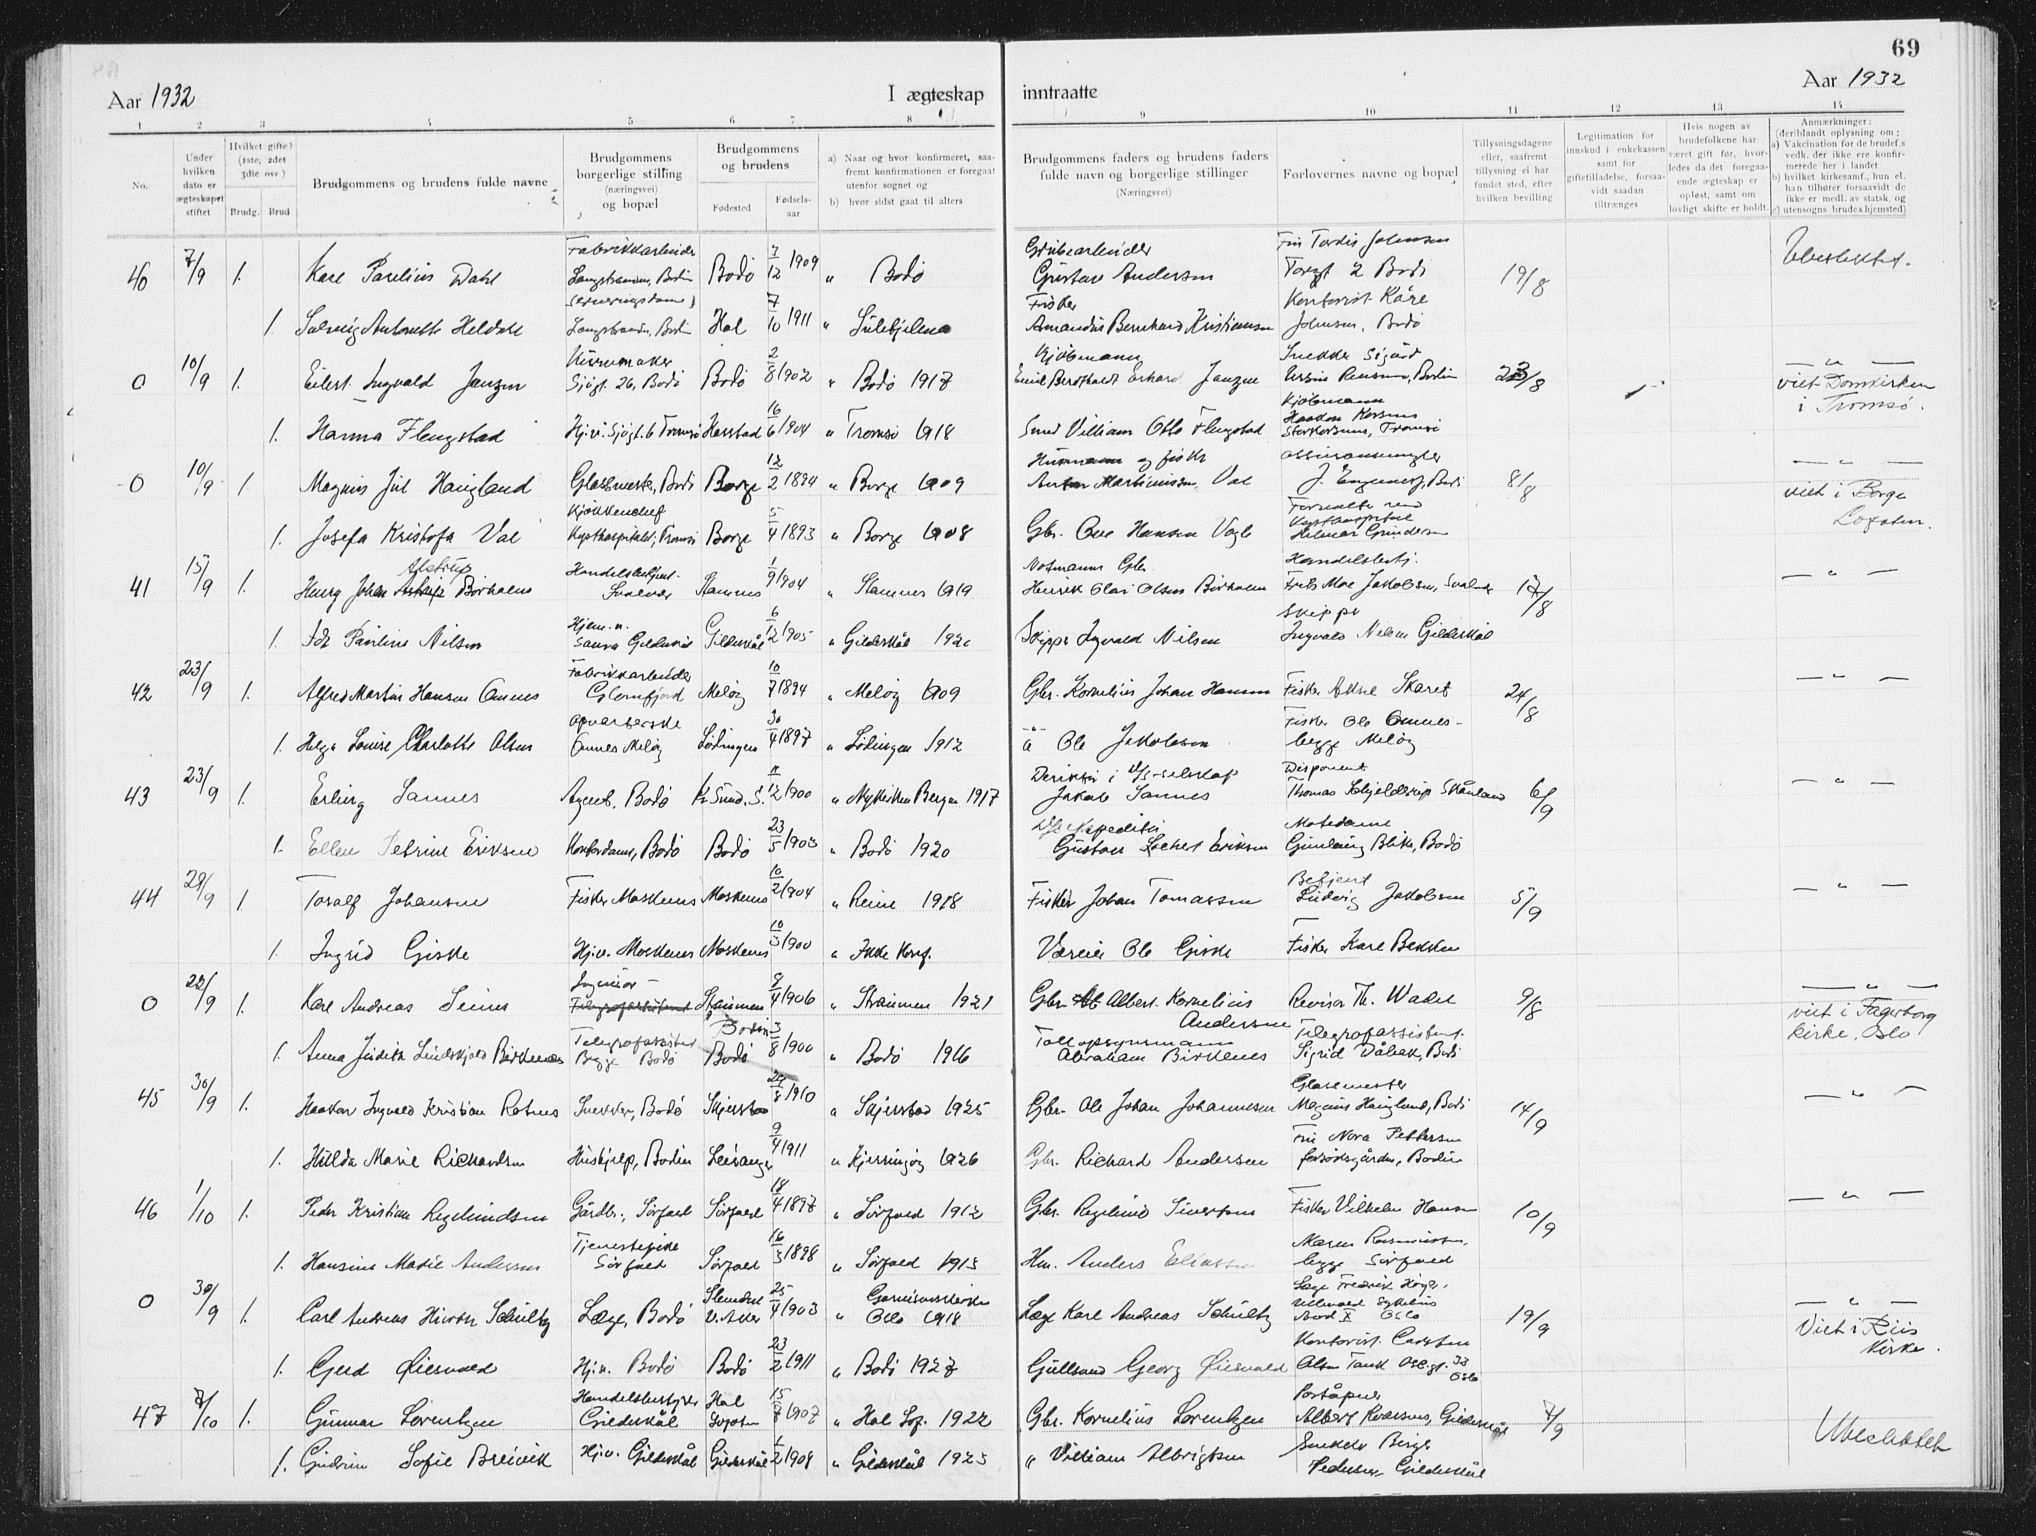 69
Aar 1932
I ægteskap inntraatte
Aar 1932
1 2 3 4 5 6 7 8 9 10 11 12 13 14
No.
Under hvilken dato er ægteskapet stiftet
Hvilket gifte? (1ste, 2det 3die osv.)
Brudg. Brud
Brudgommens og brudens fulde navne
Brudgommens borgerlige stilling (næringsvei) og bopæl
Brudgommens og brudens
Fødested Fødsels-aar
a) Naar og hvor konfirmeret, saafremt konfirmationen er foregaat utenfor sognet og
b) hvor sidst gaat til alters
Brudgommens faders og brudens faders fulde navn og borgerlige stillinger
(Næringsvei)
Forlovernes navne og bopæl
Tillysningsdagene eller, saafremt tillysning ei har fundet sted, efter hvilken bevilling
Legitimation for innskud i enkekassen samt for giftetilladelse, forsaavidt saadan tiltrænges
Hvis nogen av brudefolkene har været gift før, hvorledes da det foregaaende ægteskap er opløst, samt om lovligt skifte er holdt.
Anmærkninger:
(deriblandt oplysning om:
a) Vakcination for de brudef.s vedk. der ikke ere konfirmerede her i landet
b) hvilket kirkesamf., hun el. han tilhører forsaavidt de ikke er medl. av statsk. og
c) utensogns brudes hjemsted)
40 7/9 1. Kare Parelius Dahl Fabrikkarbeider Langstranden, Bodin Bodö 7/12 1909 " Bodö Grubearbeider Gustav Andersen Fru Tordis Johansen Torvgt 2 Bodö 19/8 Ubeslektet.
1. Solveig Antonette Heldahl Serveringsdame Langstranden, Bodin Hol 7/10 1911 " Sulitjelma Fisker Amandus Bernhard Kristiansen Kontorist Kåre Johnsen, Bodö
0 10/9 1. Eilert Ingvald Janzen Urmaker Sjögt. 26, Bodö Bodö 2/8 1902 " Bodö 1917 Kjöbmann Emil Berthardt Erhard Janzen Snekker Sigurd 23/8 — " — viet Domkirken i Tromsö.
1. Hanna Flengstad Hj.v. Sjögt. 6 Tromsö Harstad 16/6 1904 " Tromsö 1918 Smed Villiam Otto Flengstad Kjöbmann Haakon Storkersens, Tromsö
0 10/9 1 Magnus Jul Haugland Glassmest., Bodö Borge 12/2 1894 " Borge 1909 Husmann og fisker Anton Martinussen, Val J. Bodö 8/8 — " — viet i Borge Lofoten.
1. Josefa Kristofa Val Kjökkenchef Kysthospitalet, Tromsö Borge 5/4 1893 " Borge 1908 Gbr. Ove Hansen Vagle Forvalter ved Kysthospitalet Hilmar Gundersen
41 15/9 1. Henry Johan Alstrup Borholm Handelsbetjent Svolvær Stamnes 1/9 1904 " Stamnes 1919 Notmann Gbr. Henrik Olai Olsen Borholm Handelsbetj. Frits Moe Jakobsen, Svolvær 17/8 — " —
1. Ida Pauline Nilsen Hjem.v. Gildeskål 6/12 1905 " Gildeskål 1920 Skipper Ingvald Nilsen Skipper Ingvald Nilsen Gildeskål
42 23/9 1. Alfred Martin Hansen Ørnes Fabrikkarbeider Glomfjord Melöy 10/7 1894 " Melöy 1909 Gbr. Kornelius Johan Hansen Fisker Aksel Skaret 24/8 — " —
1. Helga Louise Charlotte Olsen Opvarterske Ørnes Melöy Lödingen 30/4 1897 " Lödingen 1912 " Ole Jakobsen Fisker Ole Ørnes begge Melöy
43 23/9 1. Erling Sannes Agent, Bodö Kr.Sund. S. 11/12 1900 " Nykirken Bergen 1917 Jakob Sannes Disponent Thomas Schjelderup Skånland 6/9 — " —
1. Ellen Petrine Eriksen Kontordame, Bodö Bodö 23/5 1903 " Bodö 1920 Gustav Eriksen Motedame Gunlaug Blik, Bodö
44 29/9 1 Toralf Johansen Fisker Moskenes Moskenes 10/2 1904 " Reine 1918 Fisker Johan Tomassen Betjent Ludvig Jakobsen 5/9 — " —
1. Ingrid Giske Hj.v. Moskenes Moskenes 10/3 1900 " Ikke konf. Væreier Ole Giske Fisker Kare Bekken
0 22/9 1. Kare Andreas Seines Ingeniör Telegrafassistent Straumen 8/4 1906 " Straumen 1921 Gbr. Albert Kornelius Andersen Revisor Th. Wadel 9/8 — " — viet i Fagerborg kirke, Oslo
1. Anna Judith Lindskjold Birkenes Telegrafassistent Begge Bodö Bodin Bodö 3/8 1900 " Bodö 1916 Tollopsynsmann Abraham Birkenes Telegrafassistent. Sigrid Dåbak, Bodö
45 30/9 1. Haakon Ingvald Kristian Rotnes Snekker, Bodö Skjerstad 29/8 1910 " Skjerstad 1925 Gbr. Ole Johan Johannesen Glassmester Magnus Haugland, Bodö 14/9 — " —
1. Hulda Marie Richardsen Hushjelp, Bodin Leiranger 9/4 1911 " Kjerringöy 1926 Gbr. Richard Andersen Fru Nora Pettersen Bodin
46 1/10 1. Peder Kristian Regelindsen Gårdbr., Sörfold Sörfold 18/4 1897 " Sörfold 1912 Gbr. Sivertsen Fisker Vilhelm Hansen 10/9 — " —
1. Hansine Marie Andersen Tjenestepike Sörfold Sörfold 16/3 1898 " Sörfold 1913 Hm. Anders Eliassen Maren Rasmussen, begge Sörfold
0 30/9 1. Carl Andreas Schultz Læge, Bodö Slemdal V. Aker 25/4 1903 " Garnisonskirken Oslo 1918 Læge Karl Andreas Schultz Læge Fredrik Ullevaal Sykehus Avd X Oslo 19/9 — " — Viet i Riis kirke.
1. Gerd Øiesvold Hj.v. Bodö Bodö 23/2 1911 " Bodö 1927 Gullsmed Georg Øiesvold Kontorist Carsten Olsen Tank 33 Oslo
47 7/10 1. Gunnar Lorentzen Handelsbestyrer Gildeskål Hol Lofoten 15/7 1907 " Hol Lof. 1922 Gbr. Kornelius Lorentzen Poståpner Albert Gildeskål 7/9 Ubeslektet
1. Gudrun Sofie Breivik Hj.v. Gildeskål Gildeskål 1/2 1908 " Gildeskål 1923 " Villiam Albrigtsen Snekker Birger Pedersen Gildeskål